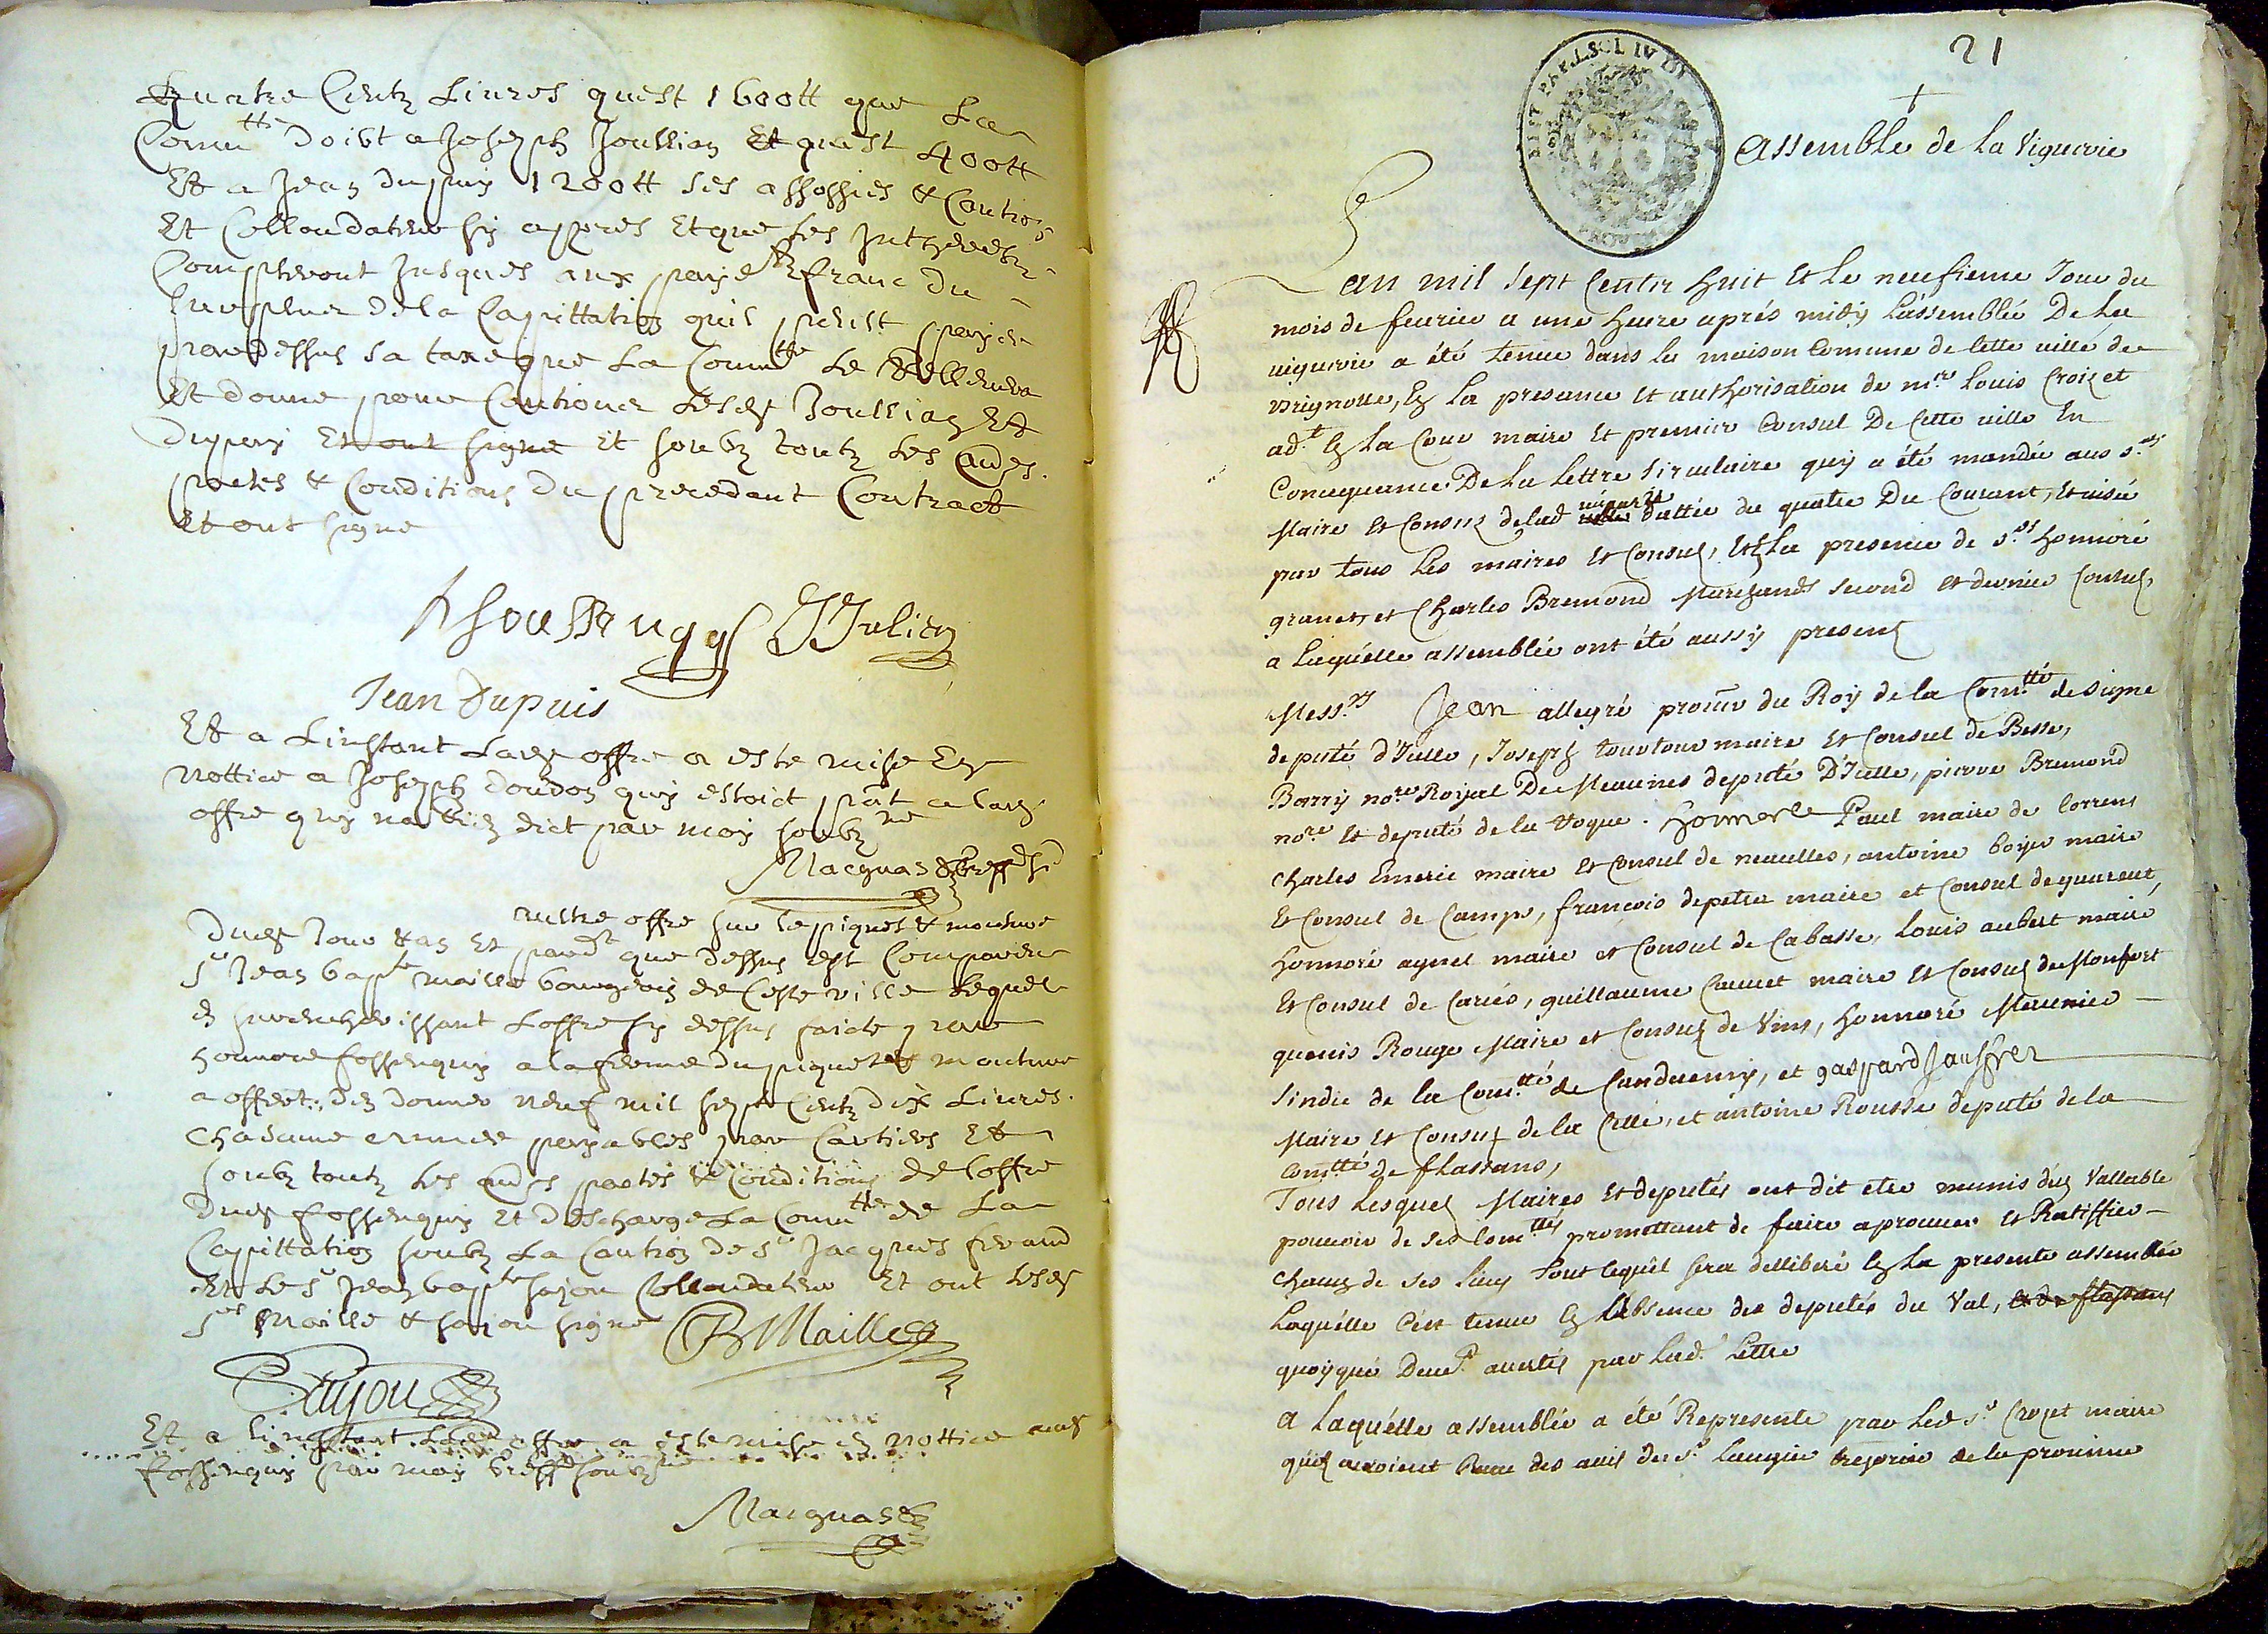 quatre Centz Liures quest 1600tt que La
Comu.tte doibt a Joseph Joullian Et quest 400tt
Et a Jean dupuis 1200tt ses assossies & Caution
Et Collaudateur sy appres Et que Les Intherestz
Compteront Jusques aux paye franc du
surplus de la Capittation quil peust payer
par dessus sa taxe que La Comtte Le
Et donne pour Cautioner Lesds Joullian Et
dupuis Et ont signe Et soubz toutz Les aues
pactes & Conditions du precedant Contract
Et ont signe
J Julien
Jean Dupuis
Et a Linstant Lade offre a este mise En
nottice a Joseph doudon quy estoict pnt a lad
offre quy na rien dict par moy soubzne
Macquas
autre offre sur le piquet & mouture
Dud Jour & an Et pard que dessus est Comparu
sr Jean bapte maille bourgeois de Ceste ville Lequel
En surencherissant Loffre sy dessus faicte par
honnore fossenquy a la ferme du piquet & mouture
a offert de donner neuf mil sept Centz dix Liures
Chacune annee payables par Cartiers Et
soubz toutz Les aues pactes & Conditions de Loffre
dud fossenquy Et descharge La Comtte de La
Capittation soubz La Caution de sr Jacques feraud
Et Le sr Jean bapte sajou Collaudateur Et ont Lesds
srs Maille & sajou signe B Maille
Sajou
Et a Linstant Lade offre a este mise En nottice aud
fossenquy par moy greff soubzne
Macquas
21
Assemblée de la Viguerie
L'an mil sept Centz huit Et Le neufieme Jour du
mois de feurier a une heure aprés midy L'assemblée De La
uiguerie a été tenue dans La maison Comune de Cette uille de
Brignolle, En La presance Et authorisation de mre Louis Croix et
ad.t En La Cour maire Et premier Consul De Cette uille En
Concequance De La Lettre Sirculaire quy a été mandée aux s.rs
Maire Et Consulz delad uille uiguerie dattée du quatre Du Courant, Et uisée
par tous Les maires Et Consuls, Et En La presence de s.rs honnoré
granet, et Charles Bremond Marchands second et dernier Consuls,
a Laquélle assemblée ont été aussy presens
Mess.rs Jean allegré procur du Roy de la Com.tté de Signe
deputé d'Icelle, Joseph tourtour maire Et Consul de Besse,
Barry nore Royal De Meaunes deputé D'Icelle, pierre Bremond
nore Et deputé de la Roque. honnoré Paul maire de Correns
Charles Emeric maire Et Consul de neaulles, antoine boyer maire
Et Consul de Camps, françois depetra maire et Consul de guareout,
honnoré aynes maire et Consul de Cabasse, Louis aubert maire
Et Consul de Carces, guillaume Cauuet maire Et Consul de Monfort
quenis Rouge Maire et Consul de Vins, honnoré Meunier
sindic de la Com.tté de Canduemy, et gaspard Jauffret
Maire Et Consul de la Celle, et antoine Rousse deputé de la
Comtté de flassans,
Tous Lesquels Maires Et deputés ont dit etre munis dun Vallable
pouuoir de ses Com.ttés promettant de faire aprouuer Et Ratiffier
chacun de ses lieux tout cequil sera delliberé En La presente assemblée
Laquélle C'est tenue En L'absence des deputés du Val, et de flassans
quoyque deue.t auertis par Lad. Lettre
A Laquélle assemblée a été Representé par Led s.r Croyet maire
quils auoient Receu des auis de s.r Laugier tresorier de la prouince